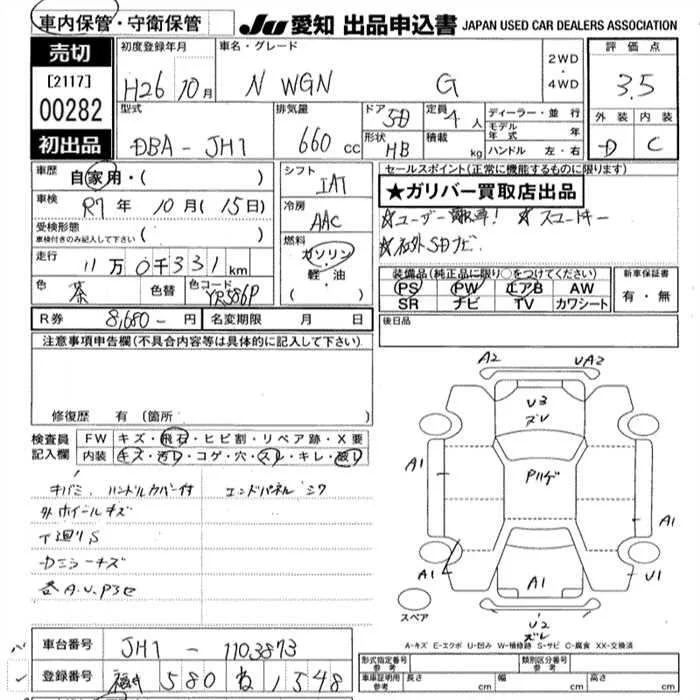 車内保管・守衛保管
JU 愛知 出品申込書 JAPAN USED CAR DEALERS ASSOCIATION
売切
[2117]
00282
初出品
初度登録年月
H26 10月
車名・グレード
N WGN G
2WD
・
4WD
評価点
3.5
外装 内装
D C
型式
DBA - JH1
排気量
660 cc
ドア
5D
定員
4人
形状
HB
積載
kg
ディーラー・並行
モデル年式 年
ハンドル 左・右
車歴
自家用・( )
車検
R7年 10月(15日)
受検形態
車検付きのみ記入して下さい ( )
走行
11万0千331km
色
茶
色替
色コード
YR586P
シフト
IAT
冷房
AAC
燃料
ガソリン
・
軽・油
( )
セールスポイント(正常に機能するものに限ります)
★ガリバー買取店出品
☆ユーザー買取車! ☆スマートキー
☆社外SDナビ
装備品(純正品に限り○をつけてください)
PS PW エアB AW
SR ナビ TV カワシート
新車保証書
有・無
R券 8,680-円 名変期限 月 日
後日品
注意事項申告欄(不具合内容等は具体的に記入して下さい)
修復歴 有(箇所 )
検査員記入欄
FW キズ・飛石・ヒビ割・リペア跡・X要
内装 キズ・汚レ・コゲ・穴・スレ・キレ・破レ
キバミ、ハンドルカバー付 エンドパネルシワ
外ホイールキズ
下廻りS
Dミラーキズ
各A.U.Pヌセ
A2 UA2
U3
ズレ
A1
Pハゲ
A1
A1
A1
U1
U2
ズレ
スペア
A-キズ E-エクボ U-凹み W-補修跡 S-サビ C-腐食 XX-交換済
車台番号 JH1 - 1103873
登録番号 580 1548
形式指定番号 参考
類別区分番号 参考
車庫証明用 参考 長さ cm 幅 cm 高さ cm